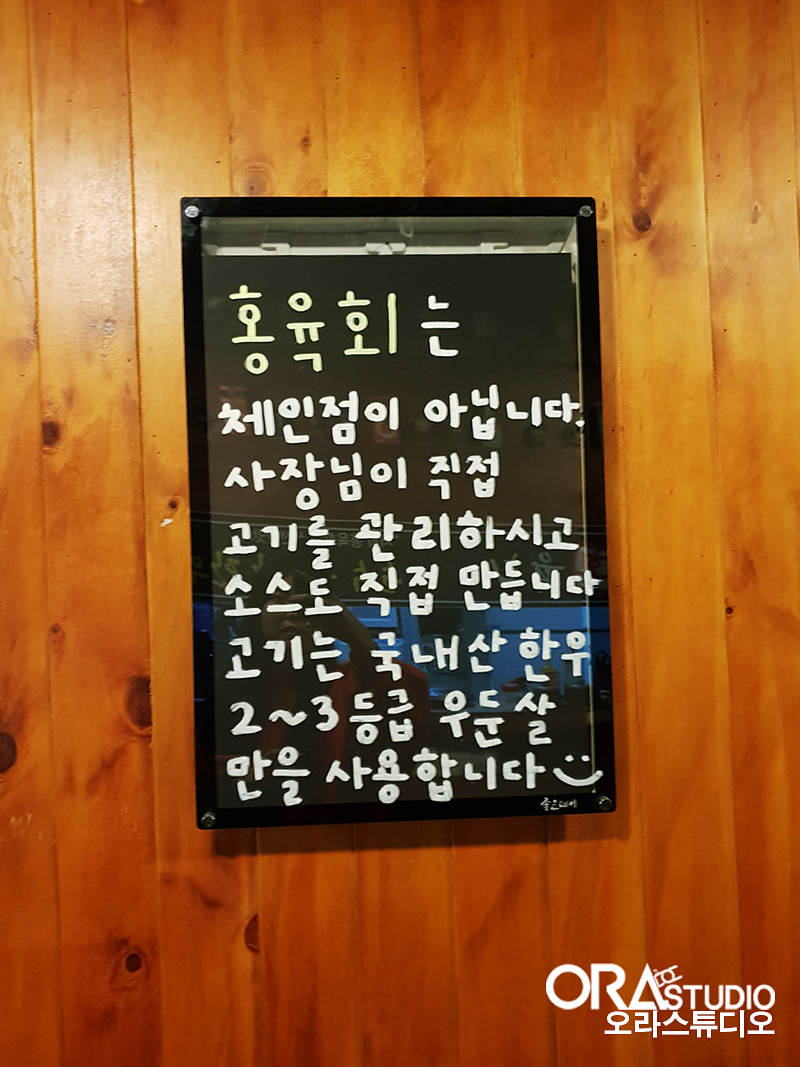 홍육회는
체인점이 아닙니다.
사장님이 직접
고기를 관리하시고
소스도 직접 만듭니다
고기는 국내산 한우
2~3등급 우둔살
만을 사용합니다
좋은데이
ORA STUDIO
오라스튜디오